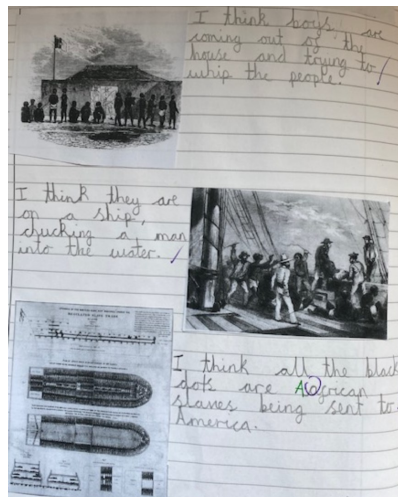 I think boys are
coming out of the
house and trying to
whip the people.
I think they are
on a ship,
chucking a man
into the water.
I think all the black
dots are African
slaves being sent to
America.